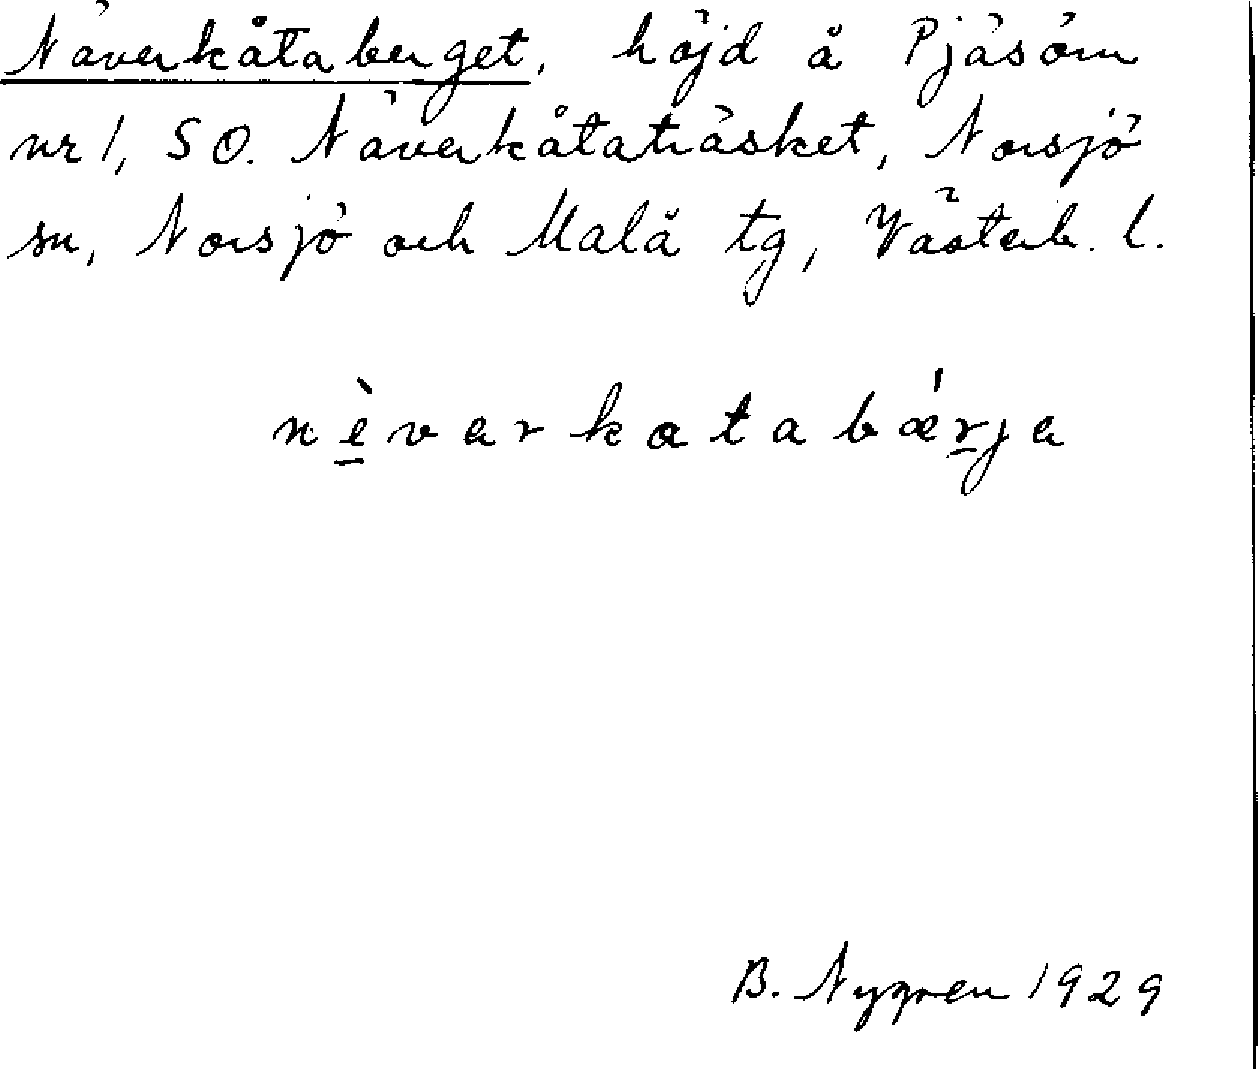 Näverkåtaberget, höjd å Pjäsörn
nr 1, SO. Näverkåtaträsket, Norsjö
sn, Norsjö och Malå tg, Västerb. l.
nèvarkatabǽrja
B. Nygren 1929